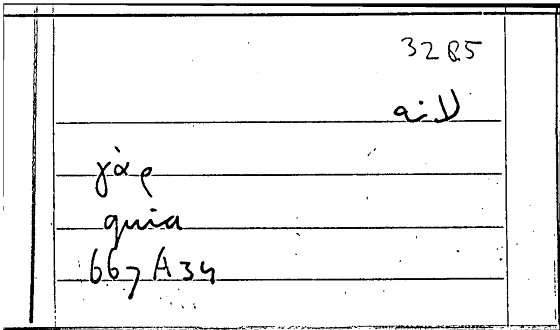 3285
لانه
γὰρ
quia
667 A34